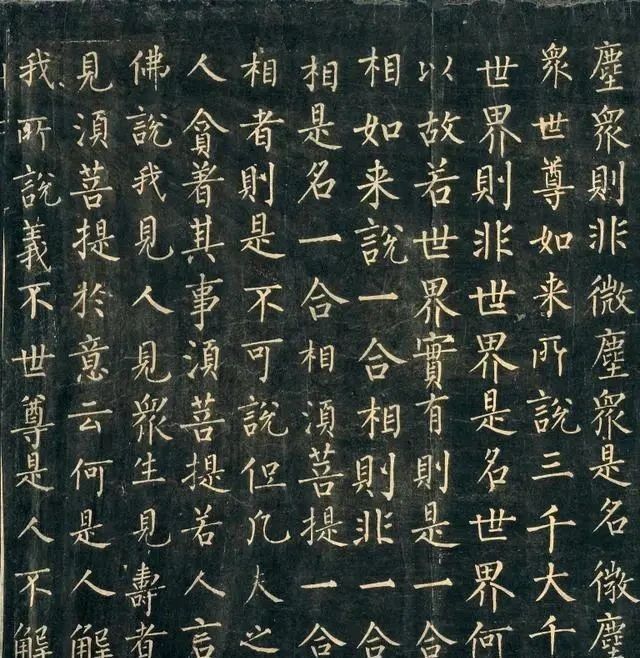 塵衆則非微塵衆是名微塵
衆世尊如来所說三千大千
世界則非世界是名世界何
以故若世界實有則是一合
相如来說一合相則非一合
相是名一合相須菩提一合
相者則是不可說但凡夫之
人貪著其事須菩提若人言
佛說我見人見衆生見壽者
見須菩提於意云何是人解
我所說義不世尊是人不解